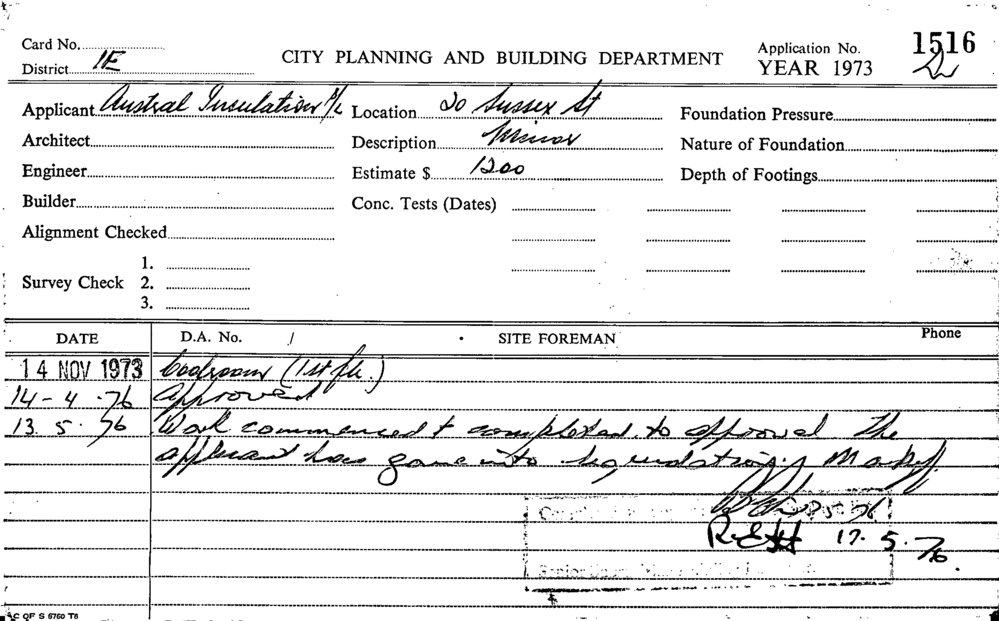 Card No.
District 1E
CITY PLANNING AND BUILDING DEPARTMENT
Application No. 1516
YEAR 1973
Applicant Austral Insulation P/L
Location 20 Sussex St
Foundation Pressure
Architect
Description Minor
Nature of Foundation
Engineer
Estimate $ 1200
Depth of Footings
Builder
Conc. Tests (Dates)
Alignment Checked
Survey Check 1.
2.
3.
DATE D.A. No. / SITE FOREMAN Phone
14 NOV 1973 Coolroom (1st flr.)
14-4-76 Approved
13.5.76 Work commenced & completed to approval The
applicant has gone into liquidation.
17.5.76.
C OF S 6760 T6